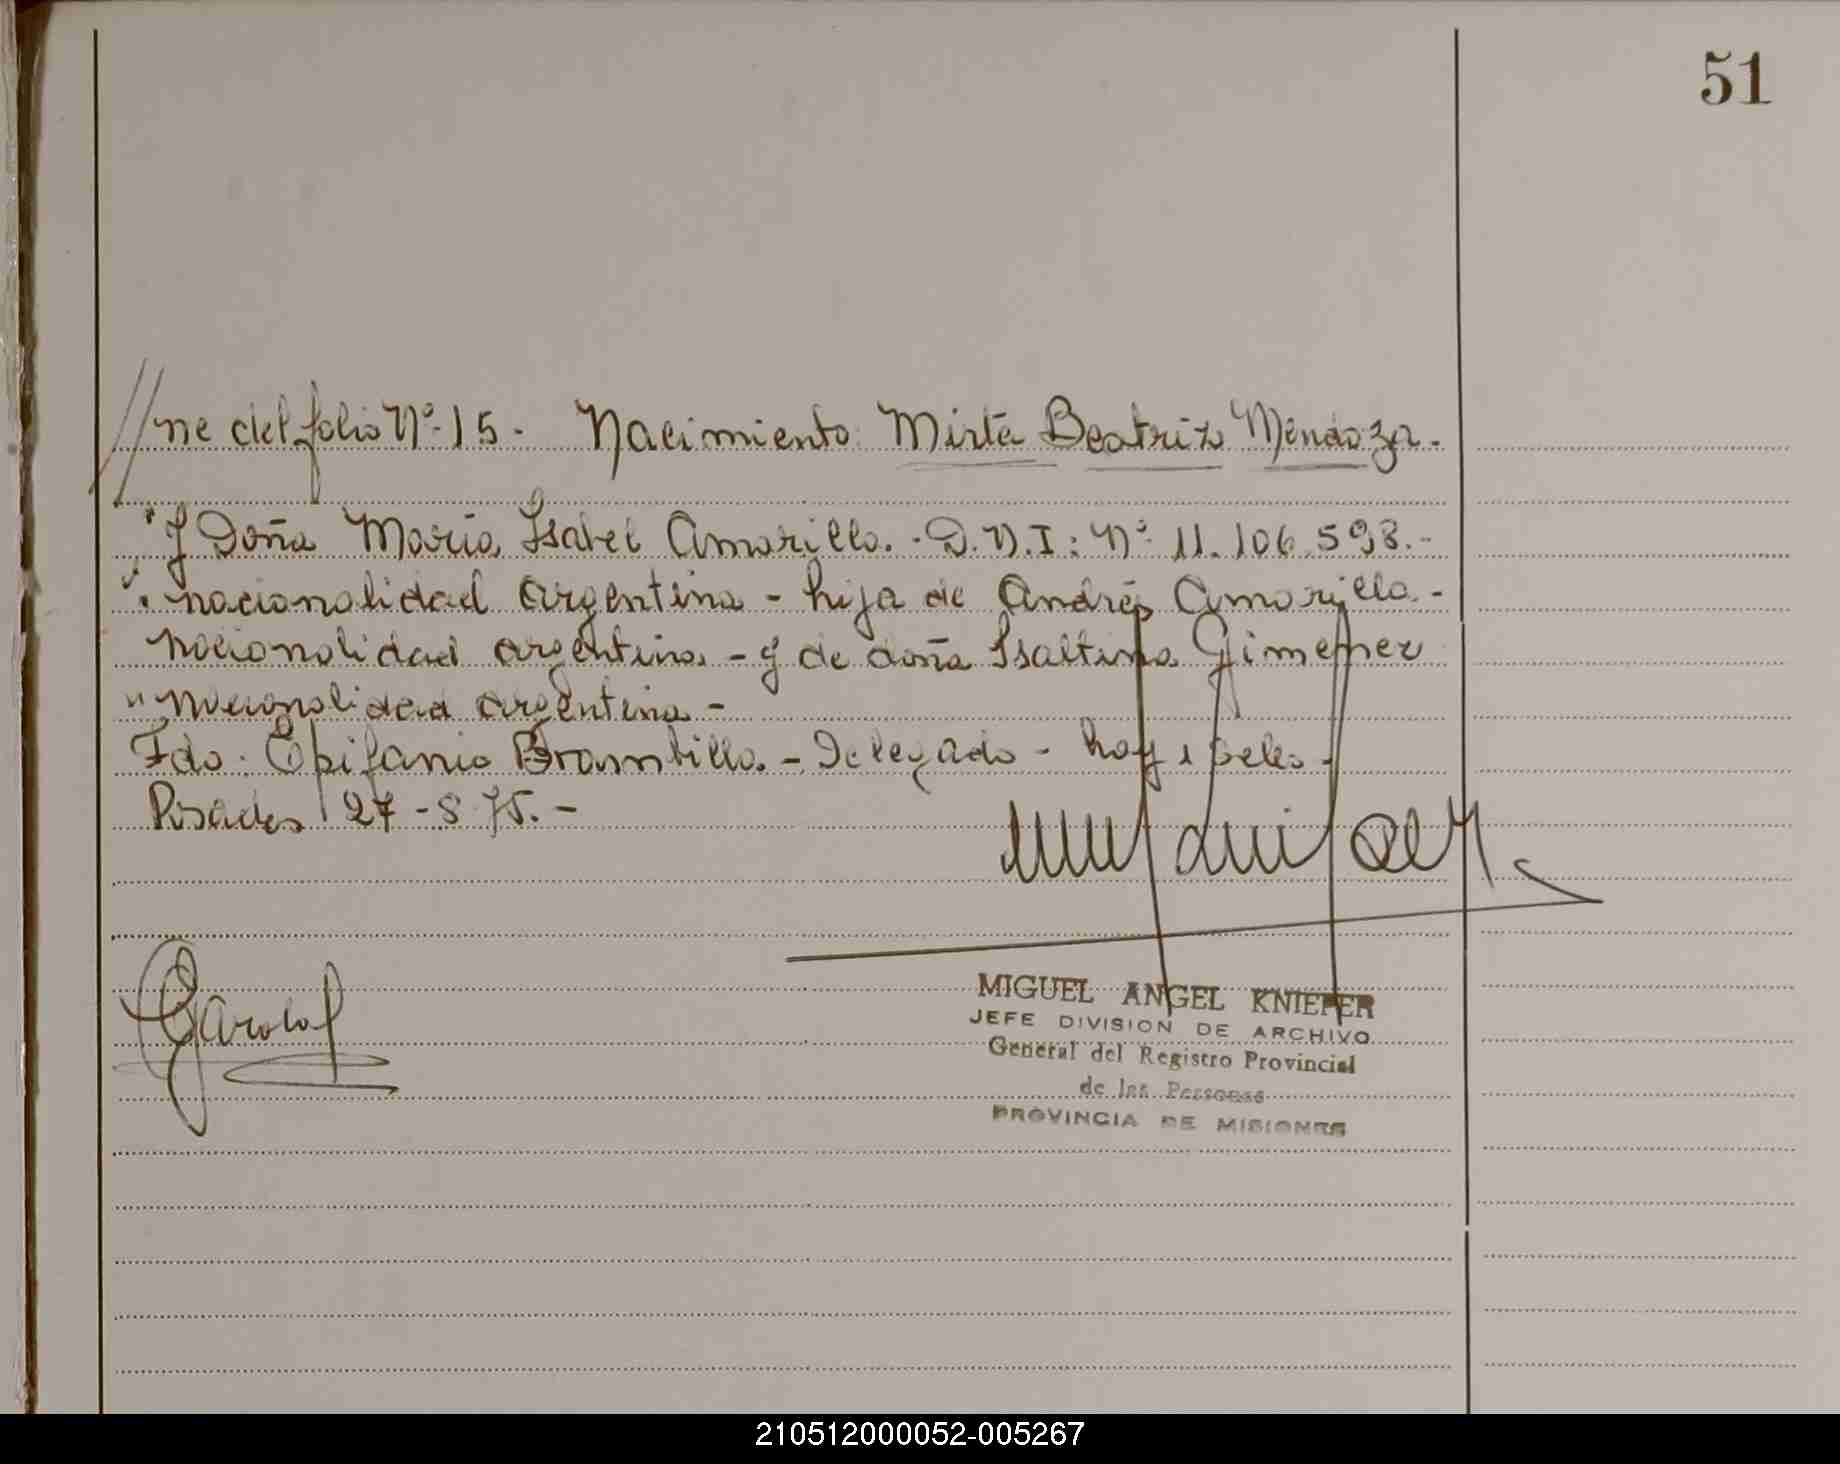 51
//ne del folio Nº 15 - Nacimiento: Mirta Beatriz Mendoza.-
"y Doña María Isabel Amarilla.- D.N.I: Nº 11.106.593.-
". nacionalidad argentina - hija de Andrés Amarilla.-
nacionalidad argentina - y de doña Isaltina Gimenez
" nacionalidad argentina -
Fdo: Epifanio Brambilla. - Delegado - hay 1 sello -
Posadas 27 - 8 75. -
MIGUEL ANGEL KNIEPER
JEFE DIVISION DE ARCHIVO
General del Registro Provincial
de las Personas
PROVINCIA DE MISIONES
210512000052-005267